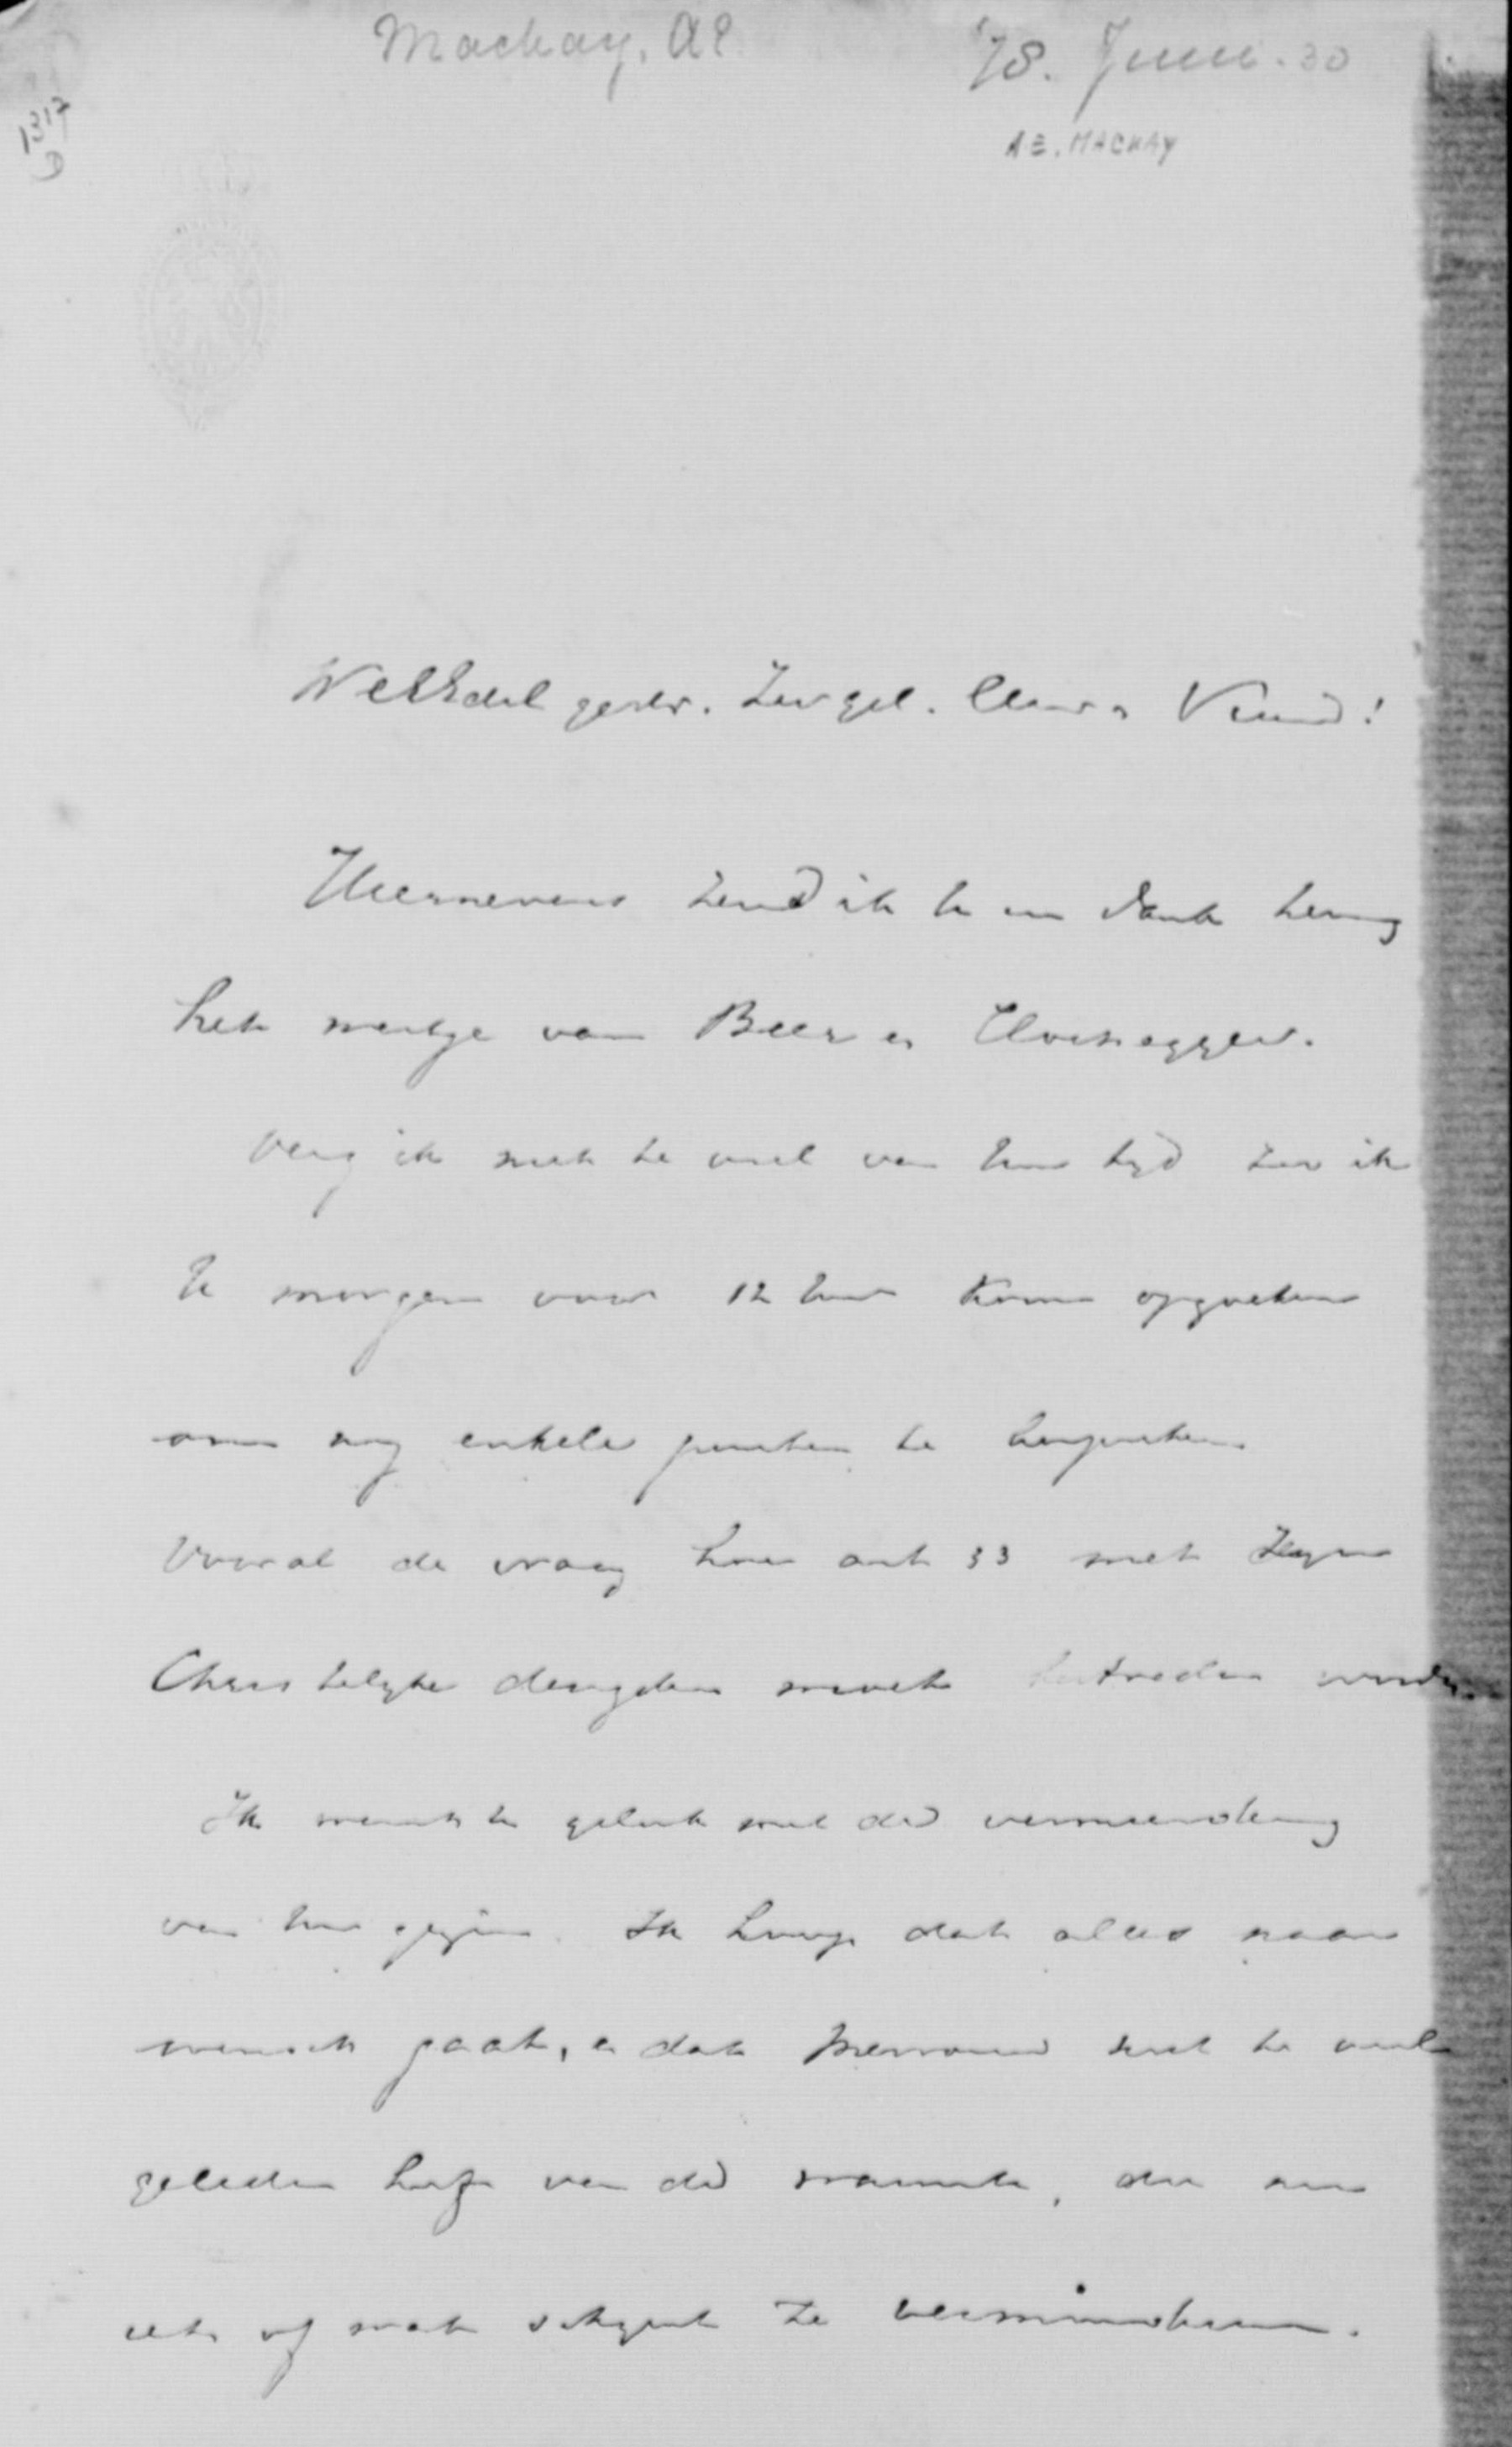 Mackay, AE
'78. Juni. 30
AE. MACKAY
1317
D
WelEdel gestr. Zeer gel. Heer en Vriend!
Hiernevens zend ik U in dank terug
het werkje van Beer en
Verg ik niet te veel van Uw tijd zoo ik
U morgen voor 12 uur kom
om nog enkele punten te bespreken
Vooral de vraag hoe art 33 met
Christelyke deugden moet worden
Ik wensch U geluk met de vermeerdering
van Uw gezin. Ik hoop dat alles naar
wensch gaat, en dat Mevrouw niet te veel
geleden heeft van de warmte, die nu
iets of wat schynt te verminderen.